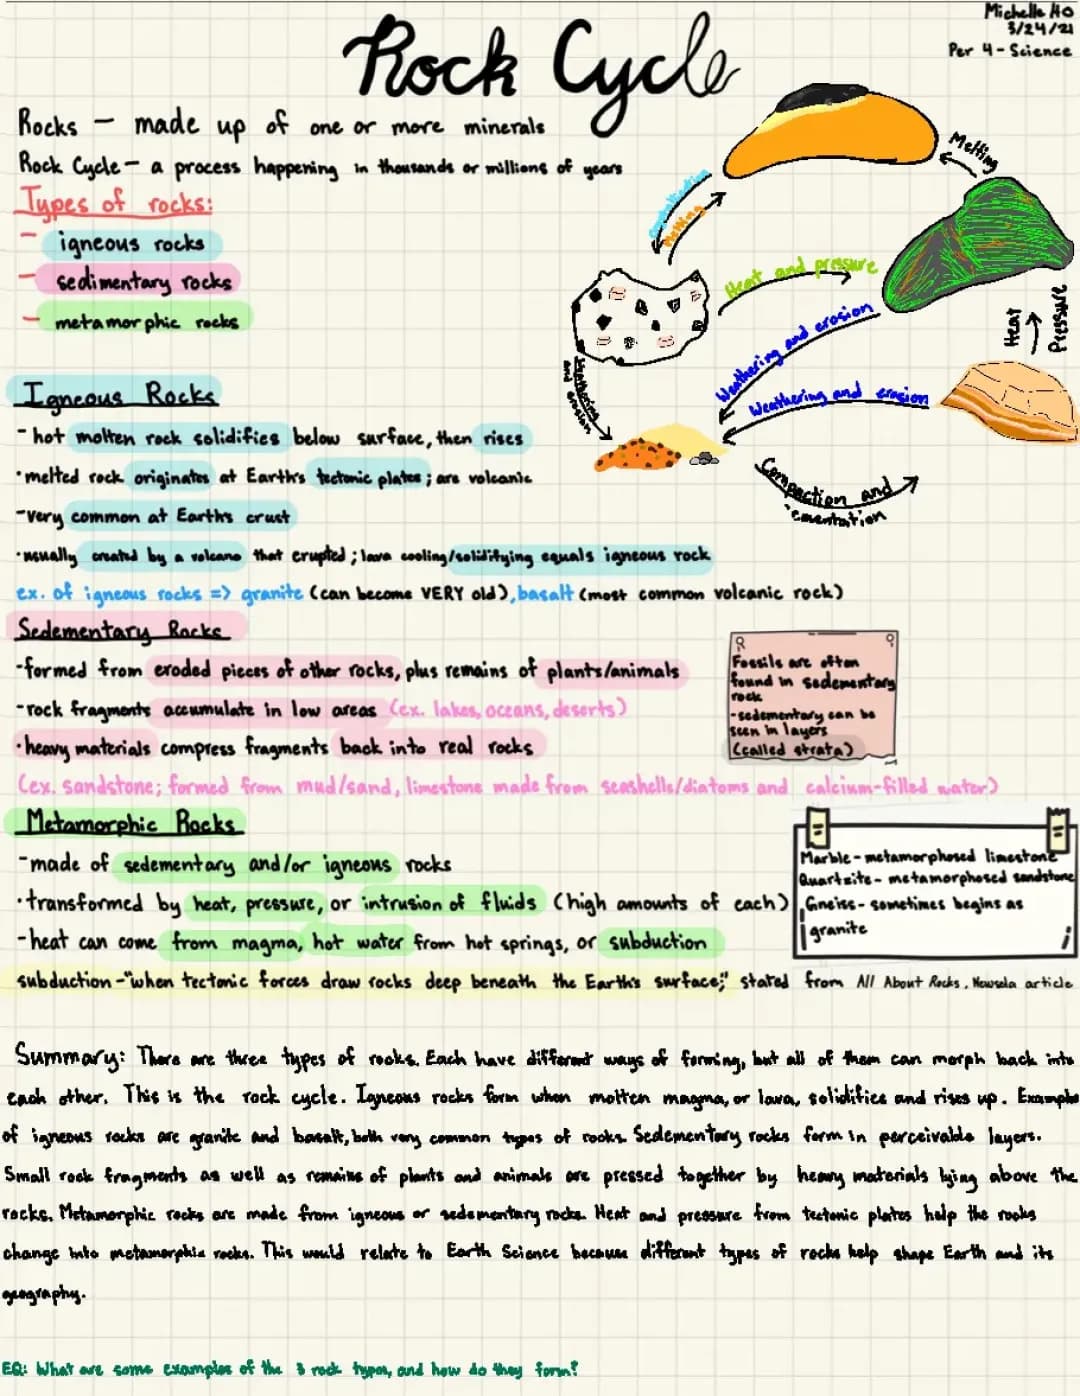 Michelle Ho
3/24/21
Per 4 - Science
Rock Cycle
Rocks - made up of one or more minerals
Rock Cycle - a process happening in thousands or millions of years
Types of rocks:
- igneous rocks
- sedimentary rocks
- metamorphic rocks
Melting
Crystallization
Melting
Heat and pressure
Weathering and erosion
Weathering and erosion
Weathering
and erosion
Heat
Pressure
Compaction and
cementation
Igneous Rocks
- hot molten rock solidifies below surface, then rises
· melted rock originates at Earth's tectonic plates; are volcanic
- very common at Earth's crust
· usually created by a volcano that erupted; lava cooling/solidifying equals igneous rock
ex. of igneous rocks => granite (can become VERY old), basalt (most common volcanic rock)
Sedementary Rocks
- formed from eroded pieces of other rocks, plus remains of plants/animals
- rock fragments accumulate in low areas (ex. lakes, oceans, deserts)
· heavy materials compress fragments back into real rocks
(ex. sandstone; formed from mud/sand, limestone made from seashells/diatoms and calcium-filled water)
Fossils are often
found in sedementary
rock
- sedementary can be
seen in layers
(called strata)
Metamorphic Rocks
- made of sedementary and/or igneous rocks
· transformed by heat, pressure, or intrusion of fluids (high amounts of each)
- heat can come from magma, hot water from hot springs, or subduction
subduction - "when tectonic forces draw rocks deep beneath the Earth's surface;" stated from All About Rocks, Newsela article
Marble - metamorphosed limestone
Quartzite - metamorphosed sandstone
Gneiss - sometimes begins as
granite
Summary: There are three types of rocks. Each have different ways of forming, but all of them can morph back into
each other. This is the rock cycle. Igneous rocks form when molten magma, or lava, solidifies and rises up. Example
of igneous rocks are granite and basalt, both very common types of rocks. Sedementary rocks form in perceivable layers.
Small rock fragments as well as remains of plants and animals are pressed together by heavy materials lying above the
rocks. Metamorphic rocks are made from igneous or sedementary rocks. Heat and pressure from tectonic plates help the rocks
change into metamorphic rocks. This would relate to Earth Science because different types of rocks help shape Earth and its
geography.
EQ: What are some examples of the 3 rock types, and how do they form?